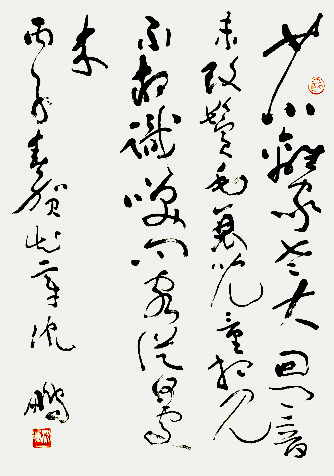 少小離家老大回乡音
未改鬢毛衰兒童相見
不相識笑問客從何處
来
丙子春賀知章沈鵬